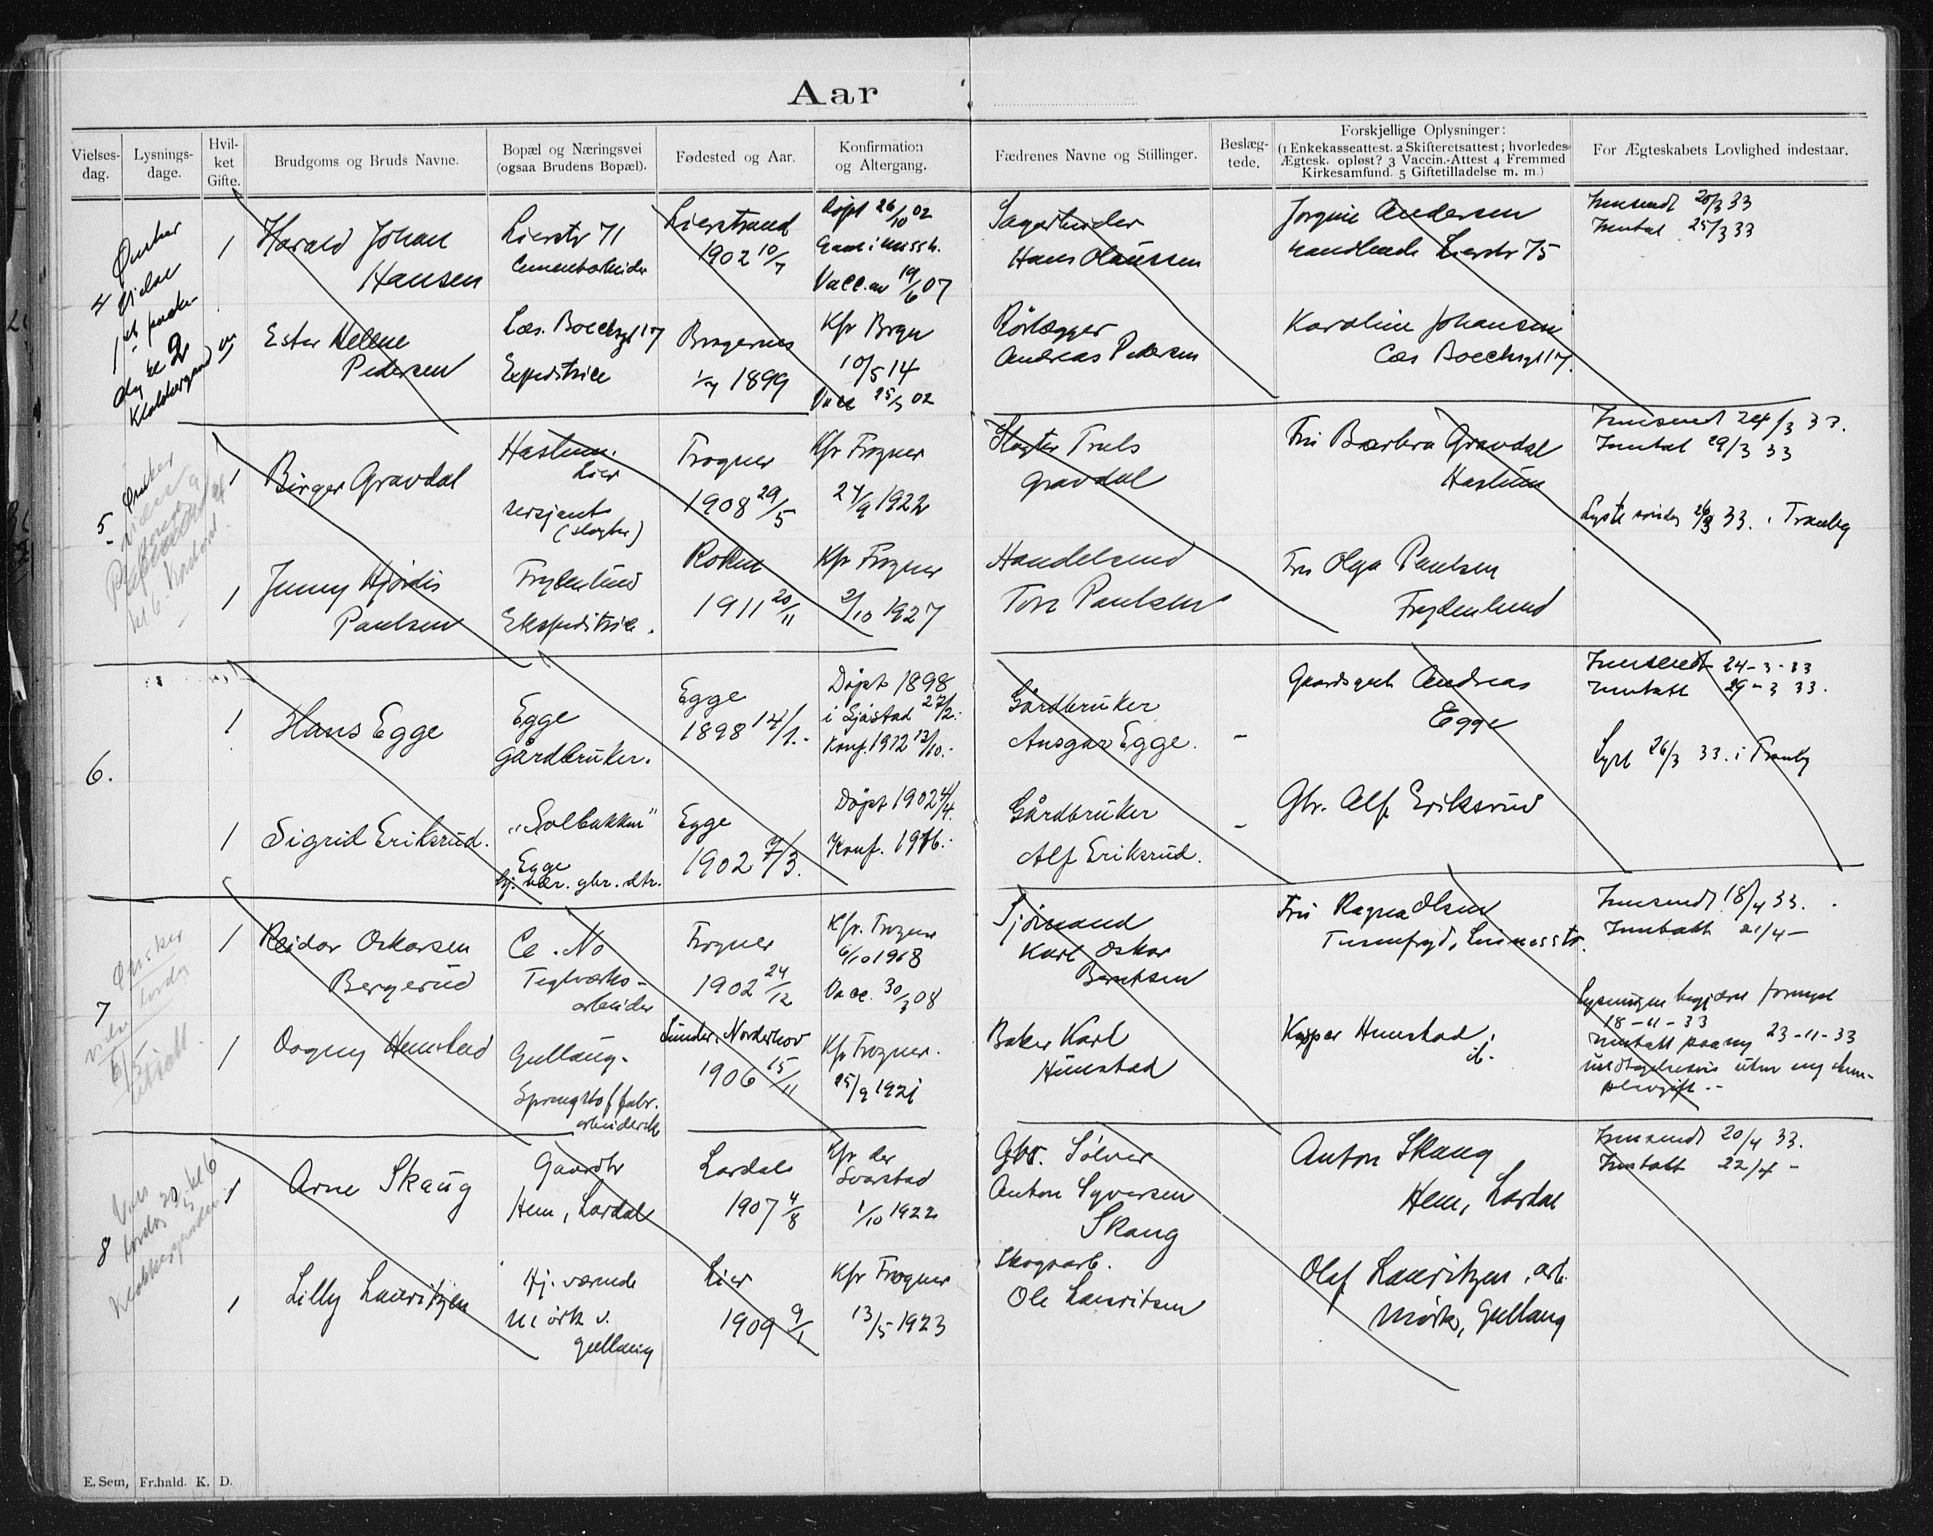 Aar
Vielses-dag.
Lysnings-dage.
Hvil-ket Gifte.
Brudgoms og Bruds Navne.
Bopæl og Næringsvei (ogsaa Brudens Bopæl).
Fødested og Aar.
Konfirmation og Altergang.
Fædrenes Navne og Stillinger.
Beslæg-tede.
Forskjellige Oplysninger:
(1 Enkekasseattest. 2 Skifteretsattest; hvorledes
Ægtesk. opløst? 3 Vaccin.-Attest 4 Fremmed
Kirkesamfund. 5 Giftetilladelse m. m.)
For Ægteskabets Lovlighed indestaar.
4
Ønsker
vielse
1
Harald Johan
Hansen
Lierstr 71
Cementarbeider
Lierstrand
1902 10/7
Døpt 26/10 02
Vacc. av 19/6 07
Sagarbeider
Hans Olaussen
Jorgine Andersen
Landhandl Lierstr 75
Innsendt 20/3 33
Inntat 25/3 33
Ester Helene
Pedersen
17
Expeditrice
Bragernes
1899
Kfr Bragn
10/5 14
Vacc 25/5 02
Rörlægger
Andreas Pedersen
Karoline Johansen
17.
5
Ønsker
1
Birger Gravdal
Haslum.
Lier
sersjant
(slagter)
Frogner
1908 29/5
Kfr Frogner
24/9 1922
Slagter Truls
Gravdal
Fru Barbra Gravdal
Haslum
Innsendt 24/3 33.
Inntat 29/3 33
Lyste søndag 26/3 33. i Tranby
1
Jenny Hjørdis
Paulsen
Frydenlund
Ekspeditrice.
Røken
1911 20/11
Kfr Frogner
2/10 1927
Handelsmd
Tore Paulsen
Fru Olga Paulsen
Frydenlund
6.
1
Hans Egge
Egge
gårdbruker.
Egge
1898 14/1.-
Døpt 1898
i Sjåstad 27/2.-
Konf. 1912 13/10.-
Gårdbruker
Ansgar Egge.
-
Andreas
Egge
Innsendt 24-3-33
Inntatt 29-3 33.
Lyst 26/3 33. i Tranby
1
Sigrid Eriksrud.
"Solbakken"
Egge
hj. vær. gbr. dtr.
Egge
1902 7/3.
Døpt 1902 4/4.
Konf. 1916.-
Gårdbruker
Alf Eriksrud.
-
Gbr. Alf Eriksrud
7
Ønsker
1
Reidar Oskarsen
Bergerud
Ca. No
Teglverks-
arbeider
Frogner
1902 24/12
Kfr. Frogner
Vacc. 30/3 08
Sjømand
Karl Oskar
Berntsen
Fru Ragna Olsen
Innsendt 18/4 33.
Inntatt 21/4 -
1
Dagny Hemstad
Gullaug.
Sprengstoffabr.
arbeiderske
Norderhov
1906 15/11
Kfr Frogner.
25/9 1921
Baker Karl
Hunstad
Kasper Hunstad
Lysningen begjært fornyet
18-11-33
Inntatt paany 23-11-33
8
1
Arne Skaug
Gaardbr
Hem, Lardal
Lardal
1907 4/8
Kfr der
Svarstad
1/10 1922
Gbr. Sølver
Anton Syversen
Skaug
Anton Skaug
Hem, Lardal
Innsendt 20/4 33.
Inntatt 22/4 -
1
Lilly Lauritzen
Hj. værende
Mørk v.
Gullaug
Lier
1909 9/1
Kfr Frogner
13/5 1923
Skogsarb.
Ole Lauritsen
Olaf Lauritzen, arb.
Mørk, Gullaug
E. Sem, Fr.hald. K. D.